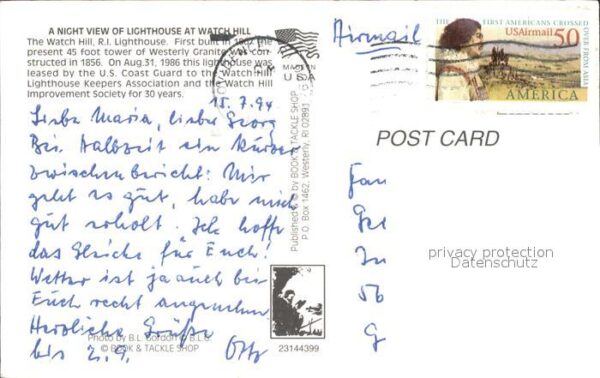 A NIGHT VIEW OF LIGHTHOUSE AT WATCH HILL
The Watch Hill, R.I. Lighthouse. First built in 1802 the
present 45 foot tower of Westerly Granite was con-
structed in 1856. On Aug.31, 1986 this lighthouse was
leased by the U.S. Coast Guard to the Watch Hill
Lighthouse Keepers Association and the Watch Hill
Improvement Society for 30 years.
MADE IN
USA
Airmail
THE FIRST AMERICANS CROSSED
OVER FROM ASIA
USAirmail 50
AMERICA
15.7.94
Liebe Maria, lieber Georg
Bei Halbzeit ein kurzer
Zwischenbericht: Mir
geht es gut, habe mich
gut erholt. Ich hoffe
das Gleiche für Euch!
Wetter ist ja auch bei
Euch recht angenehm
Herzliche Grüße
bis 2.9. Otto
Photo by B.L. Gordon
© BOOK & TACKLE SHOP
Published & © by BOOK & TACKLE SHOP
P.O. Box 1462, Westerly, RI 02891
23144399
POST CARD
Fam
In
56
G
privacy protection
Datenschutz